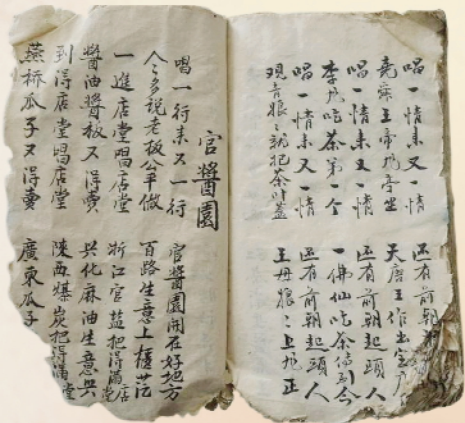 唱一情来又一情 还有前朝
堯舜王帝地亭坐 天唐王作出宝
唱一情来又一情 还有前朝起頭人
李凡吃茶第一个 一佛仙吃茶傳到今
唱一情来又一情 还有前朝起頭人
观音娘〻就把茶叶盖 王母娘〻上九正
官醬園
唱一行来又一行 官醬園開在好地方
人〻多说老板公平做 百路生意上櫃
一進店堂唱店堂 浙江官盐把得满店堂
醬油醬板又得賣 兴化麻油生意兴
到得店堂唱店堂 陕西煤炭把得满堂
燕桥瓜子又得賣 廣東瓜子